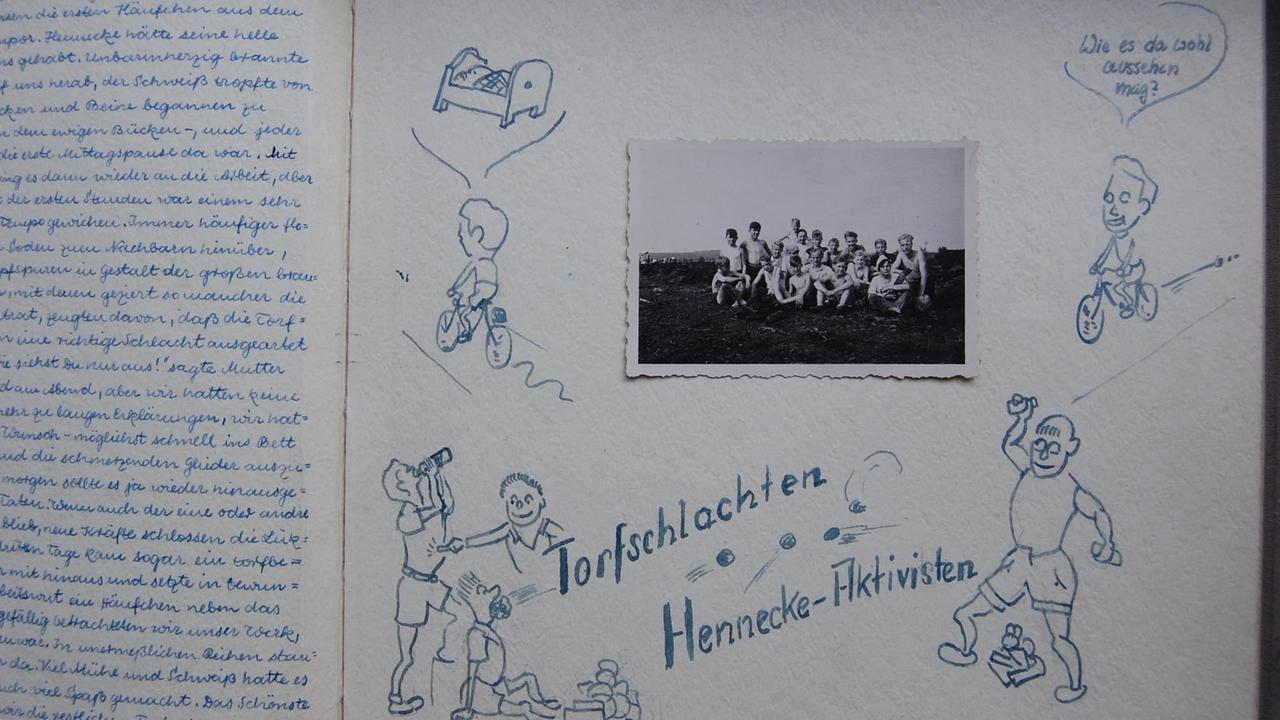 sen die ersten Häufchen aus dem
por. Hennecke hätte seine helle
gehabt. Unbarmherzig brannte
f uns herab, der Schweiß tropfte von
cken und Beine begannen zu
dem ewigen Bücken-, und jeder
die erste Mittagspause da war. Mit
ing es dann wieder an die Arbeit, aber
der ersten Stunden war einem sehr
Tempo gewichen. Immer häufiger flo-
Soden zum Nachbarn hinüber,
pfspuren in Gestalt der großen brau=
, mit denen geziert so mancher die
trat, zeugten davon, daß die Torf=
n eine richtige Schlacht ausgeartet
ie siehst Du nur aus!" sagte Mutter
dann Abend, aber wir hatten keine
mehr zu langen Erklärungen, wir hat=
Wunsch - möglichst schnell ins Bett
und die schmerzenden Glieder auszu=
morgen sollte es ja wieder hinausge=
Taten. Wenn auch der eine oder andre
blieb, neue Kräfte schlossen die Lük=
dritten Tage kam sogar ein
mit hinaus und setzte in bewun=
ein Häufchen neben das
gefällig betrachteten wir unser Werk,
war. In unermeßlichen Reihen stan=
da. Viel Mühe und Schweiß hatte es
uch viel Spaß gemacht. Das Schönste
Wie es da wohl
aussehen
mag?
Torfschlachten
Hennecke-Aktivisten